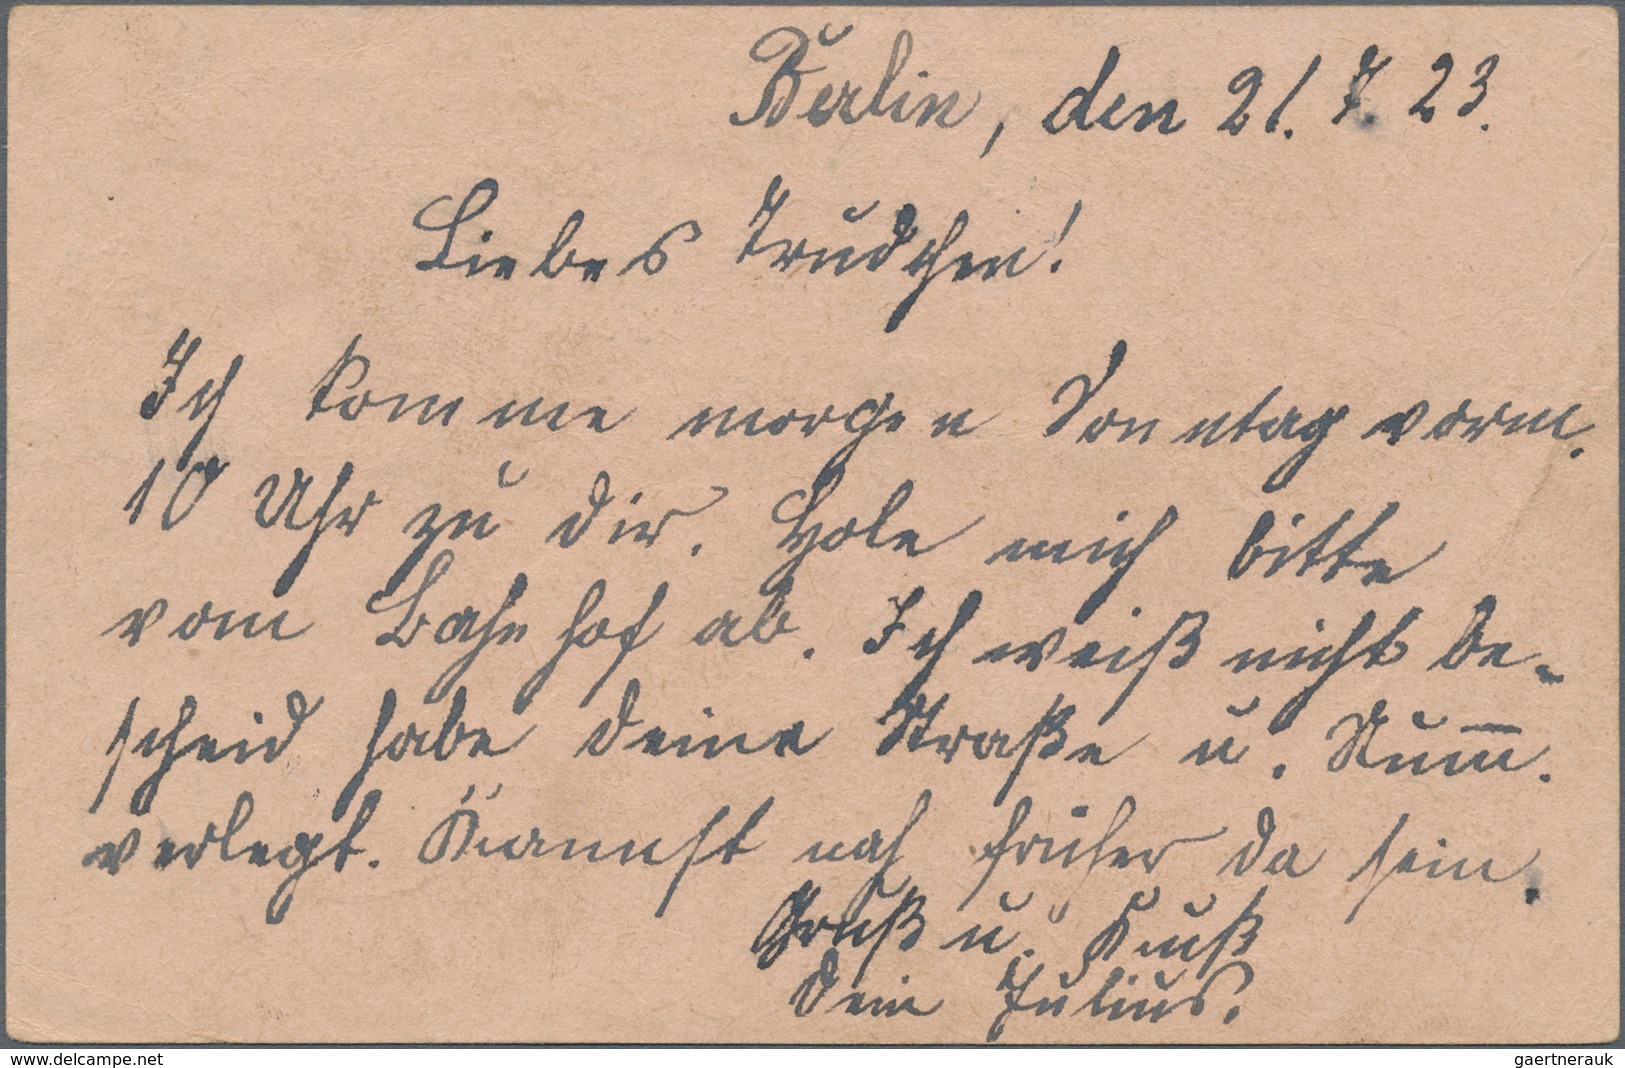 Berlin, den 21. 7. 23.
Liebes Trudchen!
Ich komme morgen Sonntag vorm.
10 Uhr zu dir. Hole mich bitte
vom Bahnhof ab. Ich weiß nicht be-
scheid habe deine Straße u. Num̅.
verlegt. Kannst nah früher da sein.
Gruß u. Kuß
Dein Julius.
www.delcampe.net
gaertnerauk